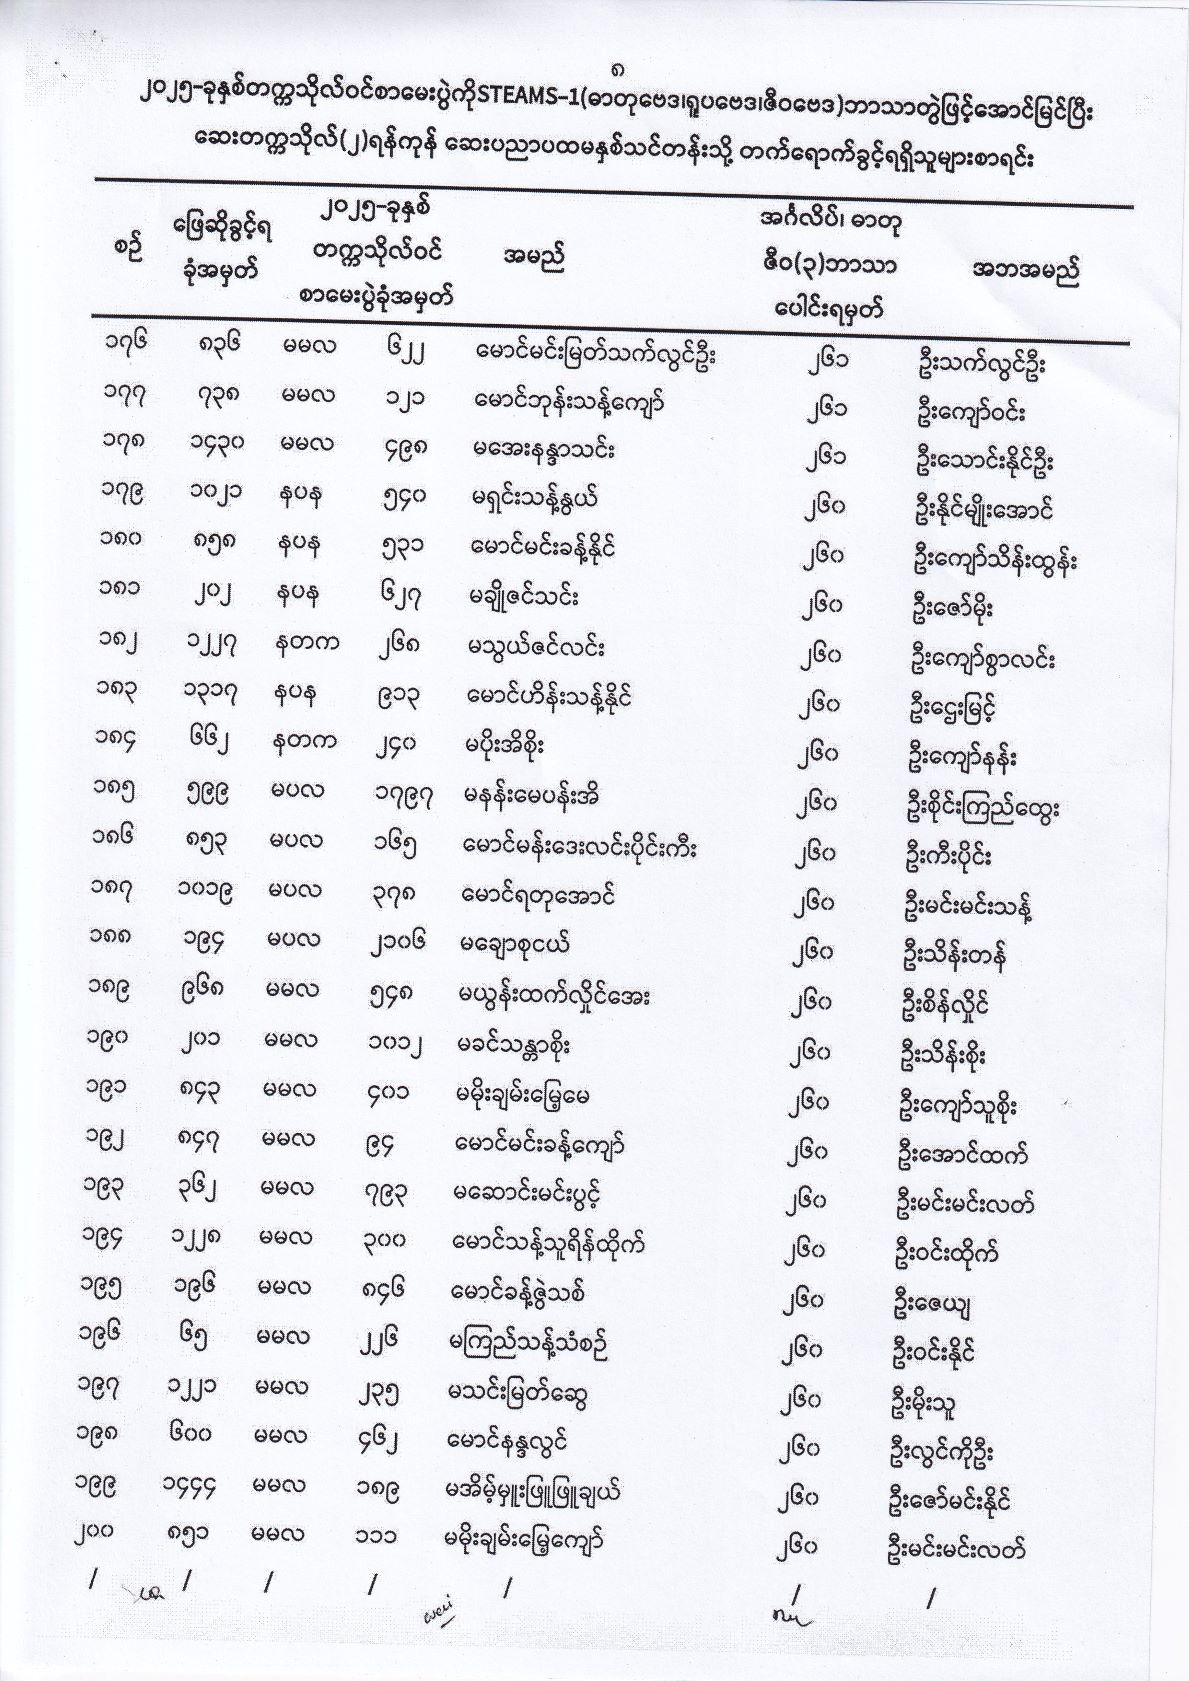 ၈
၂၀၂၅-ခုနှစ်တက္ကသိုလ်ဝင်စာမေးပွဲကိုSTEAMS-1(ဓာတုဗေဒ၊ရူပဗေဒ၊ဇီဝဗေဒ)ဘာသာတွဲဖြင့်အောင်မြင်ပြီး
ဆေးတက္ကသိုလ်(၂)ရန်ကုန် ဆေးပညာပထမနှစ်သင်တန်းသို့ တက်ရောက်ခွင့်ရရှိသူများစာရင်း
စဉ် ဖြေဆိုခွင့်ရ ခုံအမှတ် ၂၀၂၅-ခုနှစ် တက္ကသိုလ်ဝင် စာမေးပွဲခုံအမှတ် အမည် အင်္ဂလိပ်၊ ဓာတု ဇီဝ(၃)ဘာသာ ပေါင်းရမှတ် အဘအမည်
၁၇၆ ၈၃၆ မမလ ၆၂၂ မောင်မင်းမြတ်သက်လွင်ဦး ၂၆၁ ဦးသက်လွင်ဦး
၁၇၇ ၇၃၈ မမလ ၁၂၁ မောင်ဘုန်းသန့်ကျော် ၂၆၁ ဦးကျော်ဝင်း
၁၇၈ ၁၄၃၀ မမလ ၄၉၈ မအေးနန္ဒာသင်း ၂၆၁ ဦးသောင်းနိုင်ဦး
၁၇၉ ၁၀၂၁ နပန ၅၄၀ မရှင်းသန့်နွယ် ၂၆၀ ဦးနိုင်မျိုးအောင်
၁၈၀ ၈၅၈ နပန ၅၃၁ မောင်မင်းခန့်နိုင် ၂၆၀ ဦးကျော်သိန်းထွန်း
၁၈၁ ၂၀၂ နပန ၆၂၇ မချိုဇင်သင်း ၂၆၀ ဦးဇော်မိုး
၁၈၂ ၁၂၂၇ နတက ၂၆၈ မသွယ်ဇင်လင်း ၂၆၀ ဦးကျော်စွာလင်း
၁၈၃ ၁၃၁၇ နပန ၉၁၃ မောင်ဟိန်းသန့်နိုင် ၂၆၀ ဦးဌေးမြင့်
၁၈၄ ၆၆၂ နတက ၂၄၀ မပိုးအိစိုး ၂၆၀ ဦးကျော်နန်း
၁၈၅ ၅၉၉ မပလ ၁၇၉၇ မနန်းမေပန်းအိ ၂၆၀ ဦးစိုင်းကြည်ထွေး
၁၈၆ ၈၅၃ မပလ ၁၆၅ မောင်မန်းဒေးလင်းပိုင်းကီး ၂၆၀ ဦးကီးပိုင်း
၁၈၇ ၁၀၁၉ မပလ ၃၇၈ မောင်ရတုအောင် ၂၆၀ ဦးမင်းမင်းသန့်
၁၈၈ ၁၉၄ မပလ ၂၁၀၆ မချောစုငယ် ၂၆၀ ဦးသိန်းတန်
၁၈၉ ၉၆၈ မမလ ၅၄၈ မယွန်းထက်လှိုင်အေး ၂၆၀ ဦးစိန်လှိုင်
၁၉၀ ၂၀၁ မမလ ၁၀၁၂ မခင်သန္တာစိုး ၂၆၀ ဦးသိန်းစိုး
၁၉၁ ၈၄၃ မမလ ၄၀၁ မမိုးချမ်းမြေ့မေ ၂၆၀ ဦးကျော်သူစိုး
၁၉၂ ၈၄၇ မမလ ၉၄ မောင်မင်းခန့်ကျော် ၂၆၀ ဦးအောင်ထက်
၁၉၃ ၃၆၂ မမလ ၇၉၃ မဆောင်းမင်းပွင့် ၂၆၀ ဦးမင်းမင်းလတ်
၁၉၄ ၁၂၂၈ မမလ ၃၀၀ မောင်သန့်သူရိန်ထိုက် ၂၆၀ ဦးဝင်းထိုက်
၁၉၅ ၁၉၆ မမလ ၈၄၆ မောင်ခန့်ဇွဲသစ် ၂၆၀ ဦးဇေယျ
၁၉၆ ၆၅ မမလ ၂၂၆ မကြည်သန့်သံစဉ် ၂၆၀ ဦးဝင်းနိုင်
၁၉၇ ၁၂၂၁ မမလ ၂၃၅ မသင်းမြတ်ဆွေ ၂၆၀ ဦးမိုးသူ
၁၉၈ ၆၀၀ မမလ ၄၆၂ မောင်နန္ဒလွင် ၂၆၀ ဦးလွင်ကိုဦး
၁၉၉ ၁၄၄၄ မမလ ၁၈၉ မအိမ့်မှူးဖြူဖြူချယ် ၂၆၀ ဦးဇော်မင်းနိုင်
၂၀၀ ၈၅၁ မမလ ၁၁၁ မမိုးချမ်းမြေ့ကျော် ၂၆၀ ဦးမင်းမင်းလတ်
/ / / / / / /